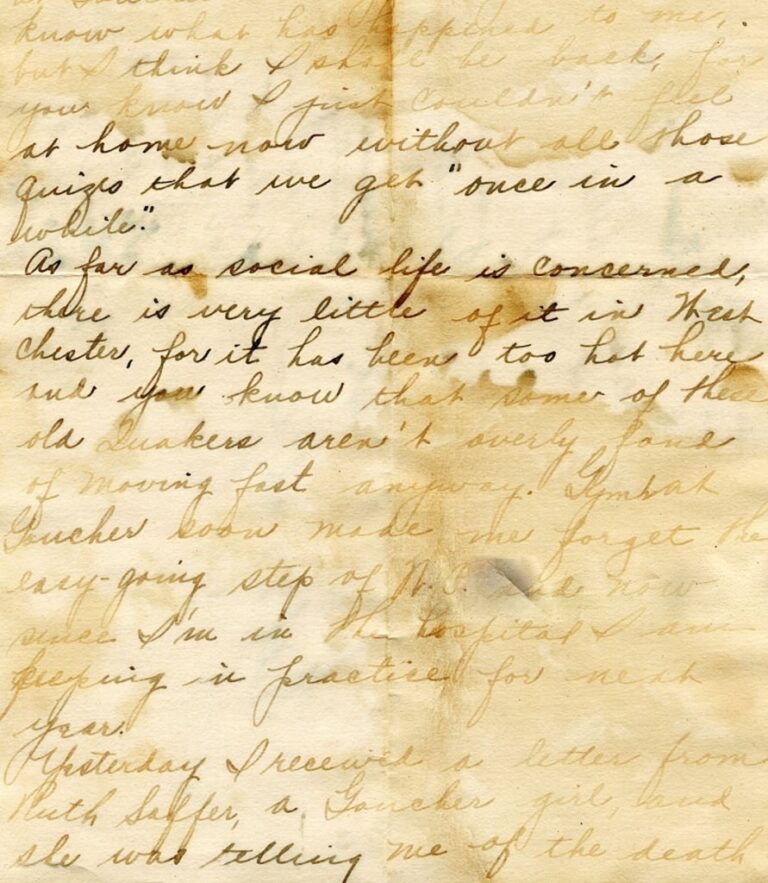 know what has happened to me,
but I think I shall be back, for
you know I just couldn't feel
at home now without all those
quizes that we get "once in a
while."
As far as social life is concerned,
there is very little of it in West
Chester, for it has been too hot here
and you know that some of these
old Quakers aren't overly fond
of moving fast anyway. at
Goucher soon made me forget the
easy-going step of W.C. and now
since I'm in the hospital I am
keeping in practice for next
year.
Yesterday I received a letter from
Ruth Saffer, a Goucher girl, and
she was telling me of the death